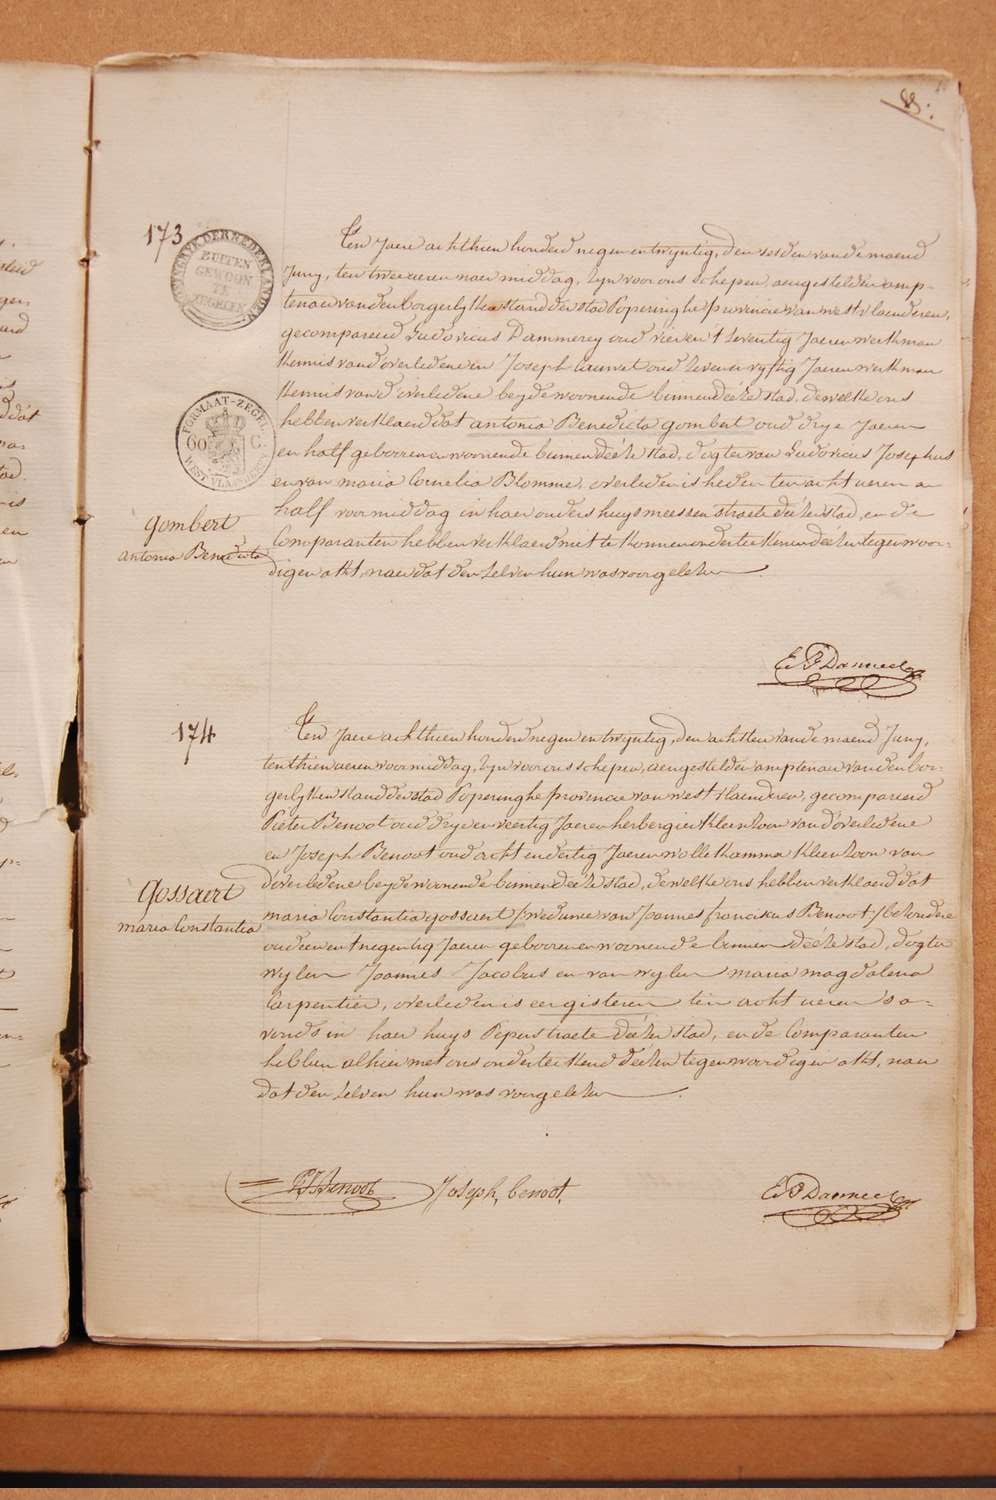 88:
173
KONINGRYK DER NEDERLANDEN
BUITEN
GEWOON
TE
ZEGELEN
Ten Jaere achthien honderd negen en twyntig, den sesden van de maend
Juny, ten twee ueren naer middag, zyn voor ons schepen, aengestelden amp-
tenaer van den borgerlyken stand der stad Poperinghe provincie van west vlaenderen,
gecompareerd Ludovicus Dammerey oud vier en 't seventig Jaeren werkman
kennis van d'overledene en Joseph Cauwet oud seven en vyftig Jaeren werkman
kennis van d'overledene beyde woonende binnen déése stad, dewelke ons
hebben verklaerd dat antonia Benedicta gombert oud drye Jaeren
en half geboren en woonende binnen déése stad, dogter van Ludovicus Josephus
en van maria Cornelia Blomme, overleden is heden ten acht ueren en
half voormiddag in haer ouders huys meessen straete déser stad, en de
Comparanten hebben verklaerd niet te konnen onderteekenen déésen tegenwoor-
digen akt, naer dat den selven hun was voorgelesen
FORMAAT-ZEGEL
60 C.
WEST VLAANDEREN
gombert
antonia Benedicta
E P Danneel
174
Ten Jaere achthien honderd negen en twyntig, den achtsten van de maend Juny,
ten thien ueren voormiddag, zyn voor ons schepen, aengestelden amptenaer van den bor-
gerlyken stand der stad Poperinghe provincie van west vlaenderen, gecompareerd
Pieter Benoot oud drye en veertig Jaeren herbergier kleenzoon van d'overledene
en Joseph Benoot oud acht en dertig Jaeren wollekammer kleenzoon van
d'overledene beyde woonende binnen déése stad, dewelke ons hebben verklaerd dat
maria Constantia gossaert /weduwe van Joannes franciskus Benoot/ besondere
oud een en t negentig Jaeren geboren en woonende binnen déése stad, dogter
wylen Joannes Jacobus en van wylen maria magdalena
Carpentier, overleden is eergisteren ten acht ueren 's a-
vonds in haer huys Peperstraete déser stad, en de Comparanten
hebben alhier met ons onderteekend déésen tegenwoordigen akt, naer
dat den selven hun was voorgelesen
Gossaert
maria Constantia
P J Benoot
Joseph, benoot,
E P Danneel